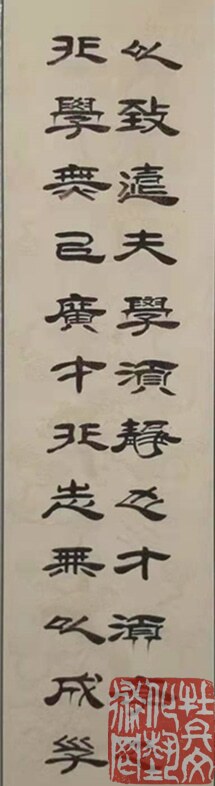 以致遠夫學須靜也才須
非學無已廣才非志無以成斈